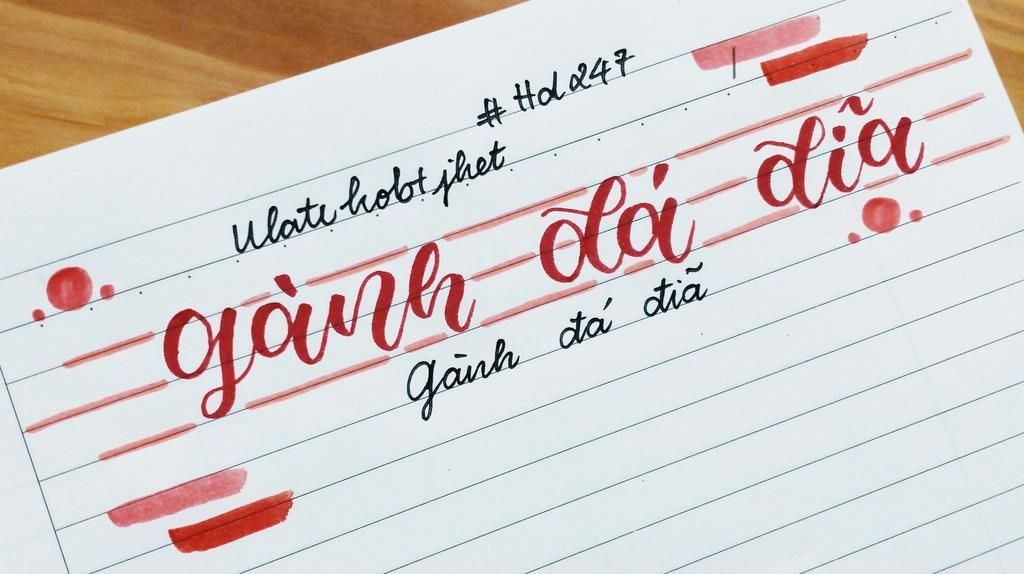 # Hd247
Ulatr kobt jhet
gành đá điã
gành đá điã